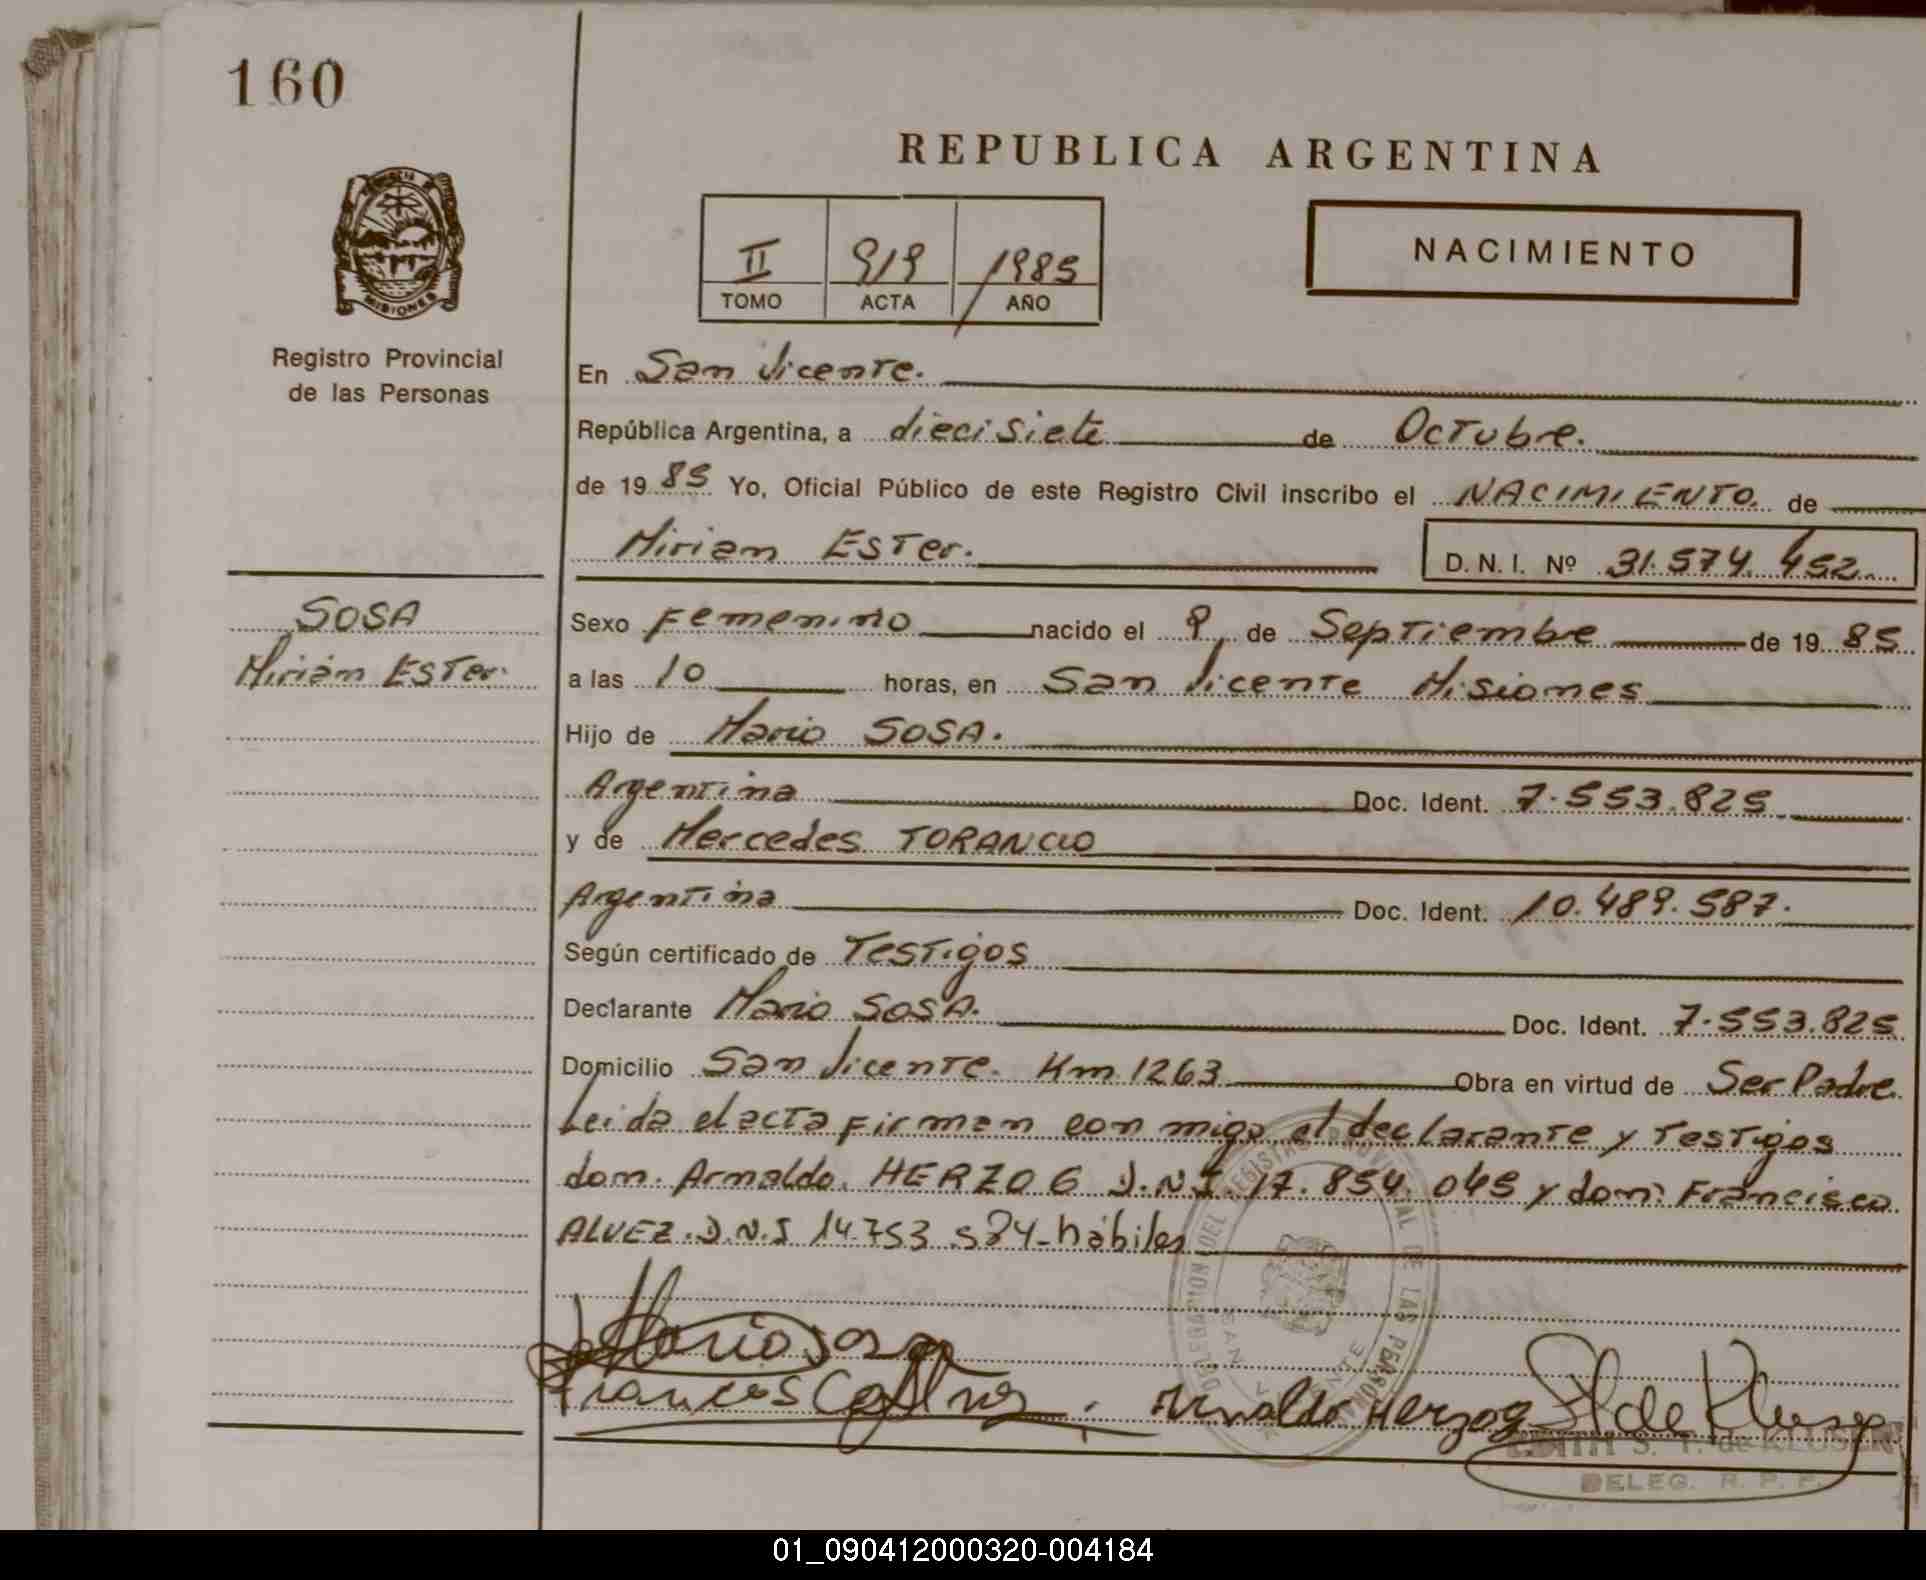 160
REPUBLICA ARGENTINA
II 919 1985
TOMO ACTA AÑO
NACIMIENTO
MISIONES
Registro Provincial
de las Personas
En San Vicente.
República Argentina, a diecisiete de Octubre.
de 1985 Yo, Oficial Público de este Registro Civil inscribo el NACIMIENTO. de
Miriam Ester.
D. N. I. Nº 31.574.452
SOSA
Miriam Ester.
Sexo Femenino nacido el 9 de Septiembre de 1985
a las 10 horas, en San Vicente Misiones
Hijo de Mario SOSA.
Argentina Doc. Ident. 7.553.825
y de Mercedes
Argentina Doc. Ident. 10.489.587.
Según certificado de Testigos
Declarante Mario SOSA. Doc. Ident. 7.553.825
Domicilio San Vicente. Km 1263 Obra en virtud de Ser Padre.
Leida el acta Firman con migo el declarante y Testigos
don. Arnaldo. HERZOG D.N.I. 17.854.045 y don: Francisco
ALVEZ. D.N.I 14.753.584-hábiles
DELEGACION DEL REGISTRO PROVINCIAL DE LAS PERSONAS
SAN VICENTE
Mario Sosa
Francisco Alvez. Arnaldo Herzog
EDITH S. T. de KLUSENER
DELEG. R. P. P.
01_090412000320-004184